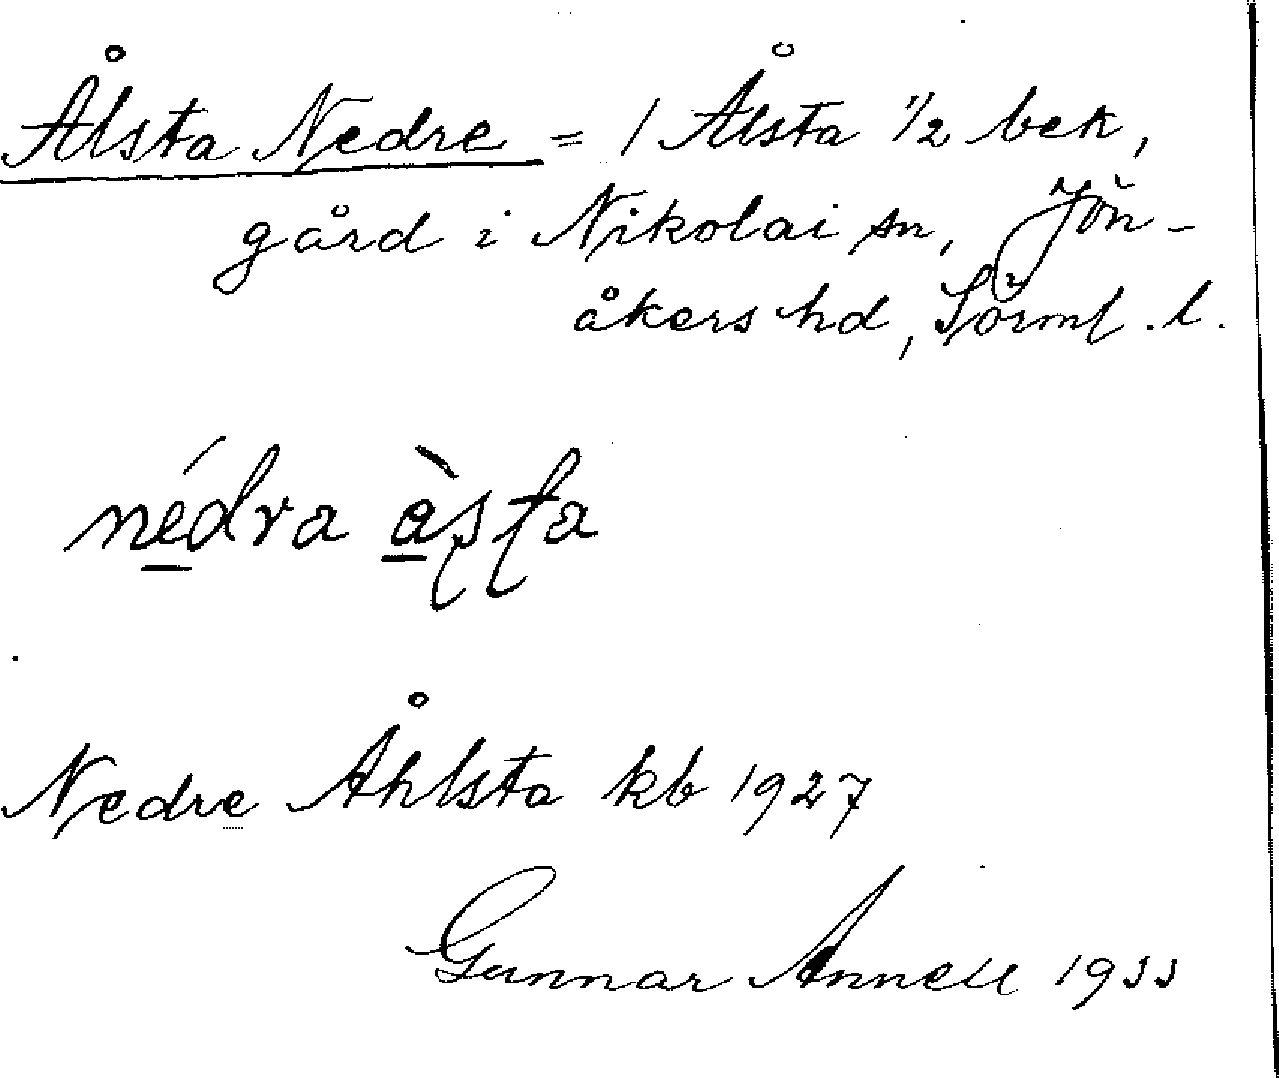 Ålsta Nedre = 1 Ålsta 1/2 bek,
gård i Nikolai sn, Jön-
åkers hd, Sörml. l.
nédra àsta
Nedre Åhlsta kb 1927
Gunnar Annell 1933